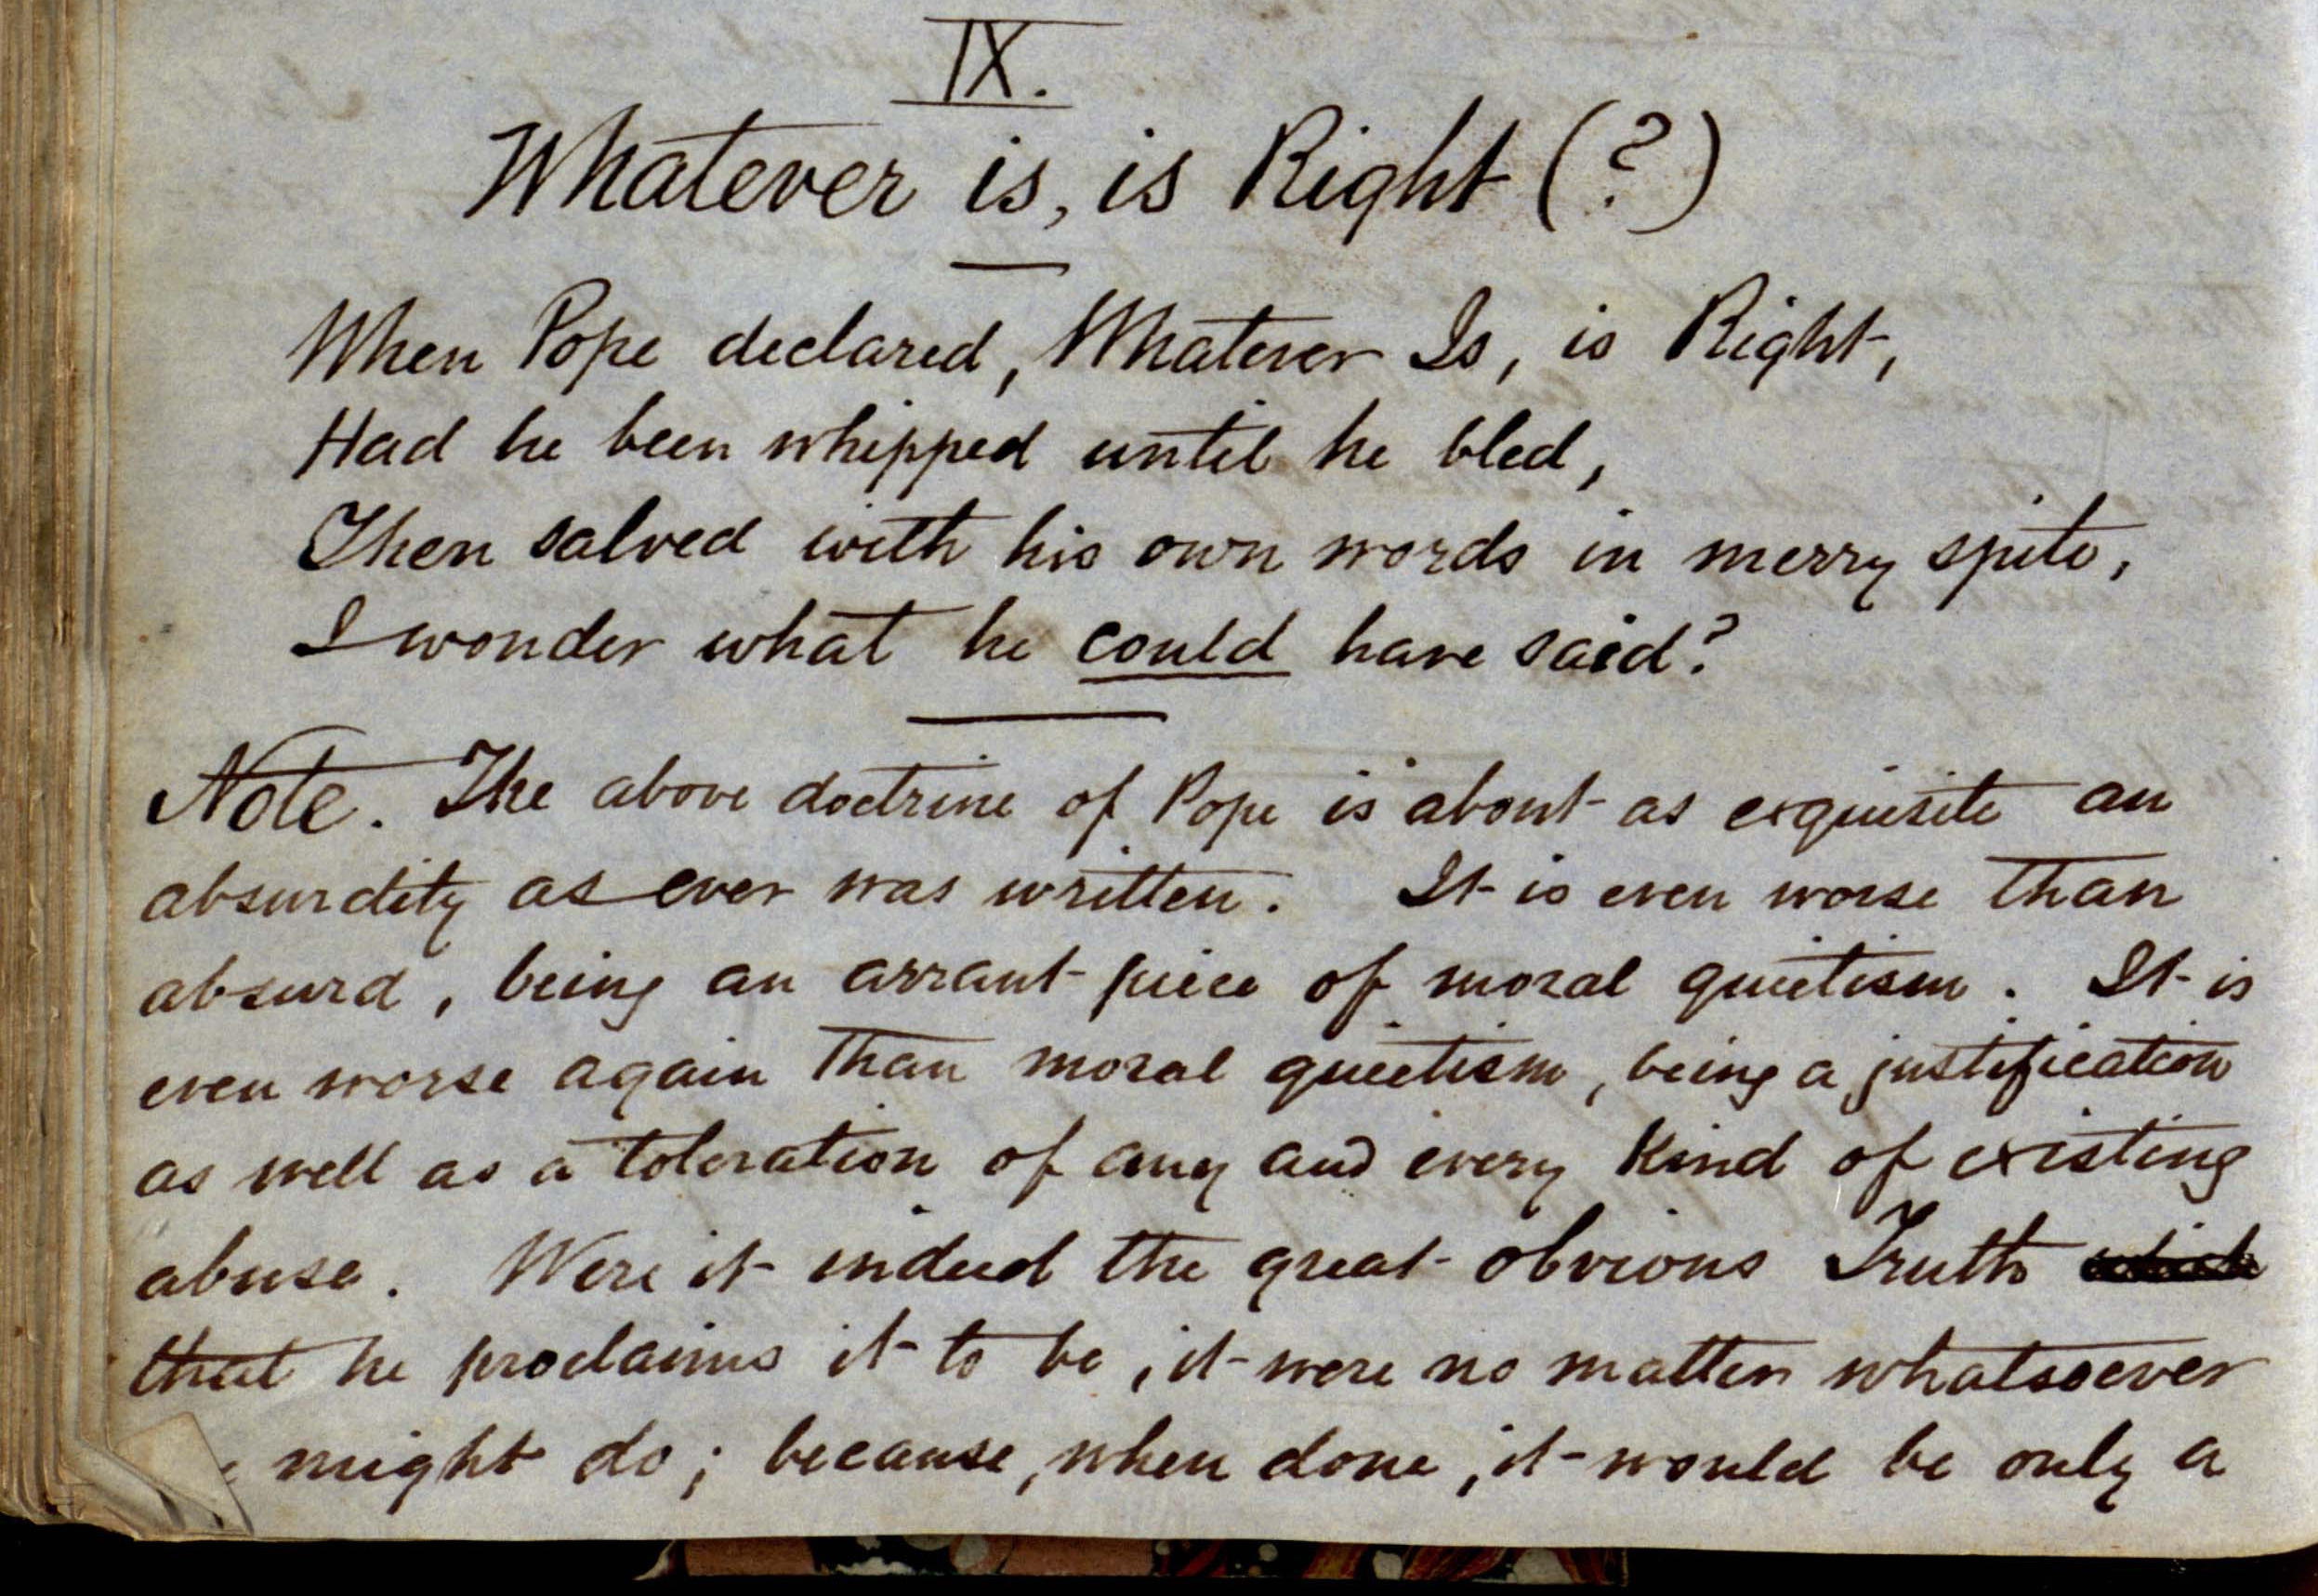 IX.
Whatever is, is Right (?)
When Pope declared, Whatever Is, is Right,
Had he been whipped until he bled,
Then salved with his own words in merry spite,
I wonder what he could have said?
Note. The above doctrine of Pope is about as exquisite an
absurdity as ever was written. It is even worse than
absurd, being an arrant piece of moral quietism. It is
even worse again than moral quietism, being a justification
as well as a toleration of any and every kind of existing
abuse. Were it indeed the great obvious Truth which
that he proclaims it to be, it were no matter whatsoever
might do; because, when done, it would be only a